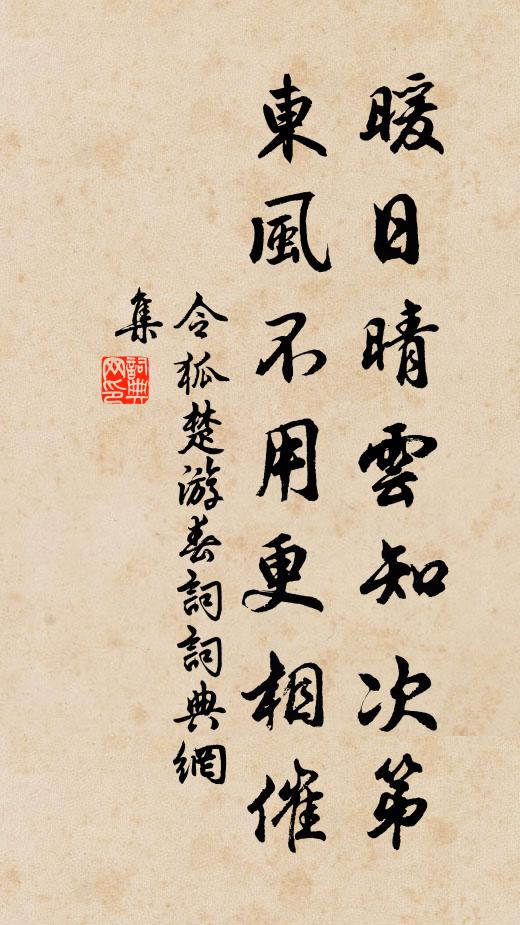 暖日晴雲知次第
東風不用更相催
令狐楚游春詞詞典網
集
詞典
网印